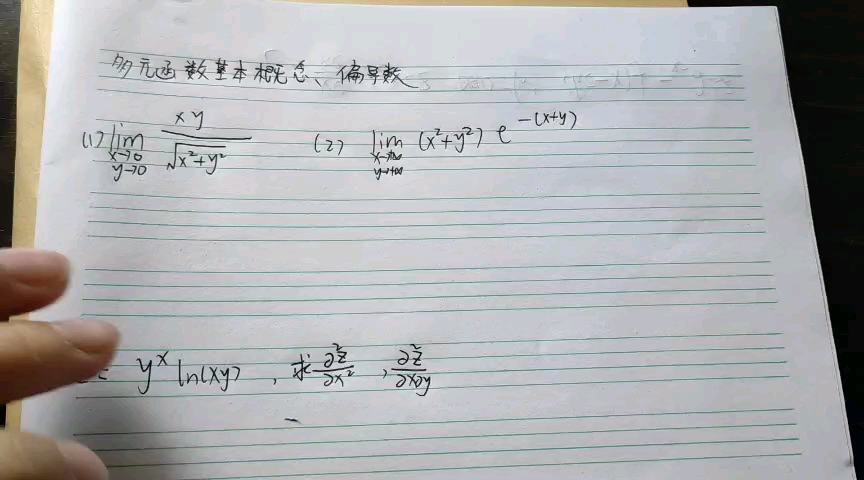 多元函数基本概念、偏导数
(1) lim x→0 y→0 xy / √(x²+y²) (2) lim x→+∞ y→+∞ (x²+y²) e^-(x+y)
= y^x ln(xy) , 求 ∂²z/∂x² , ∂²z/∂x∂y